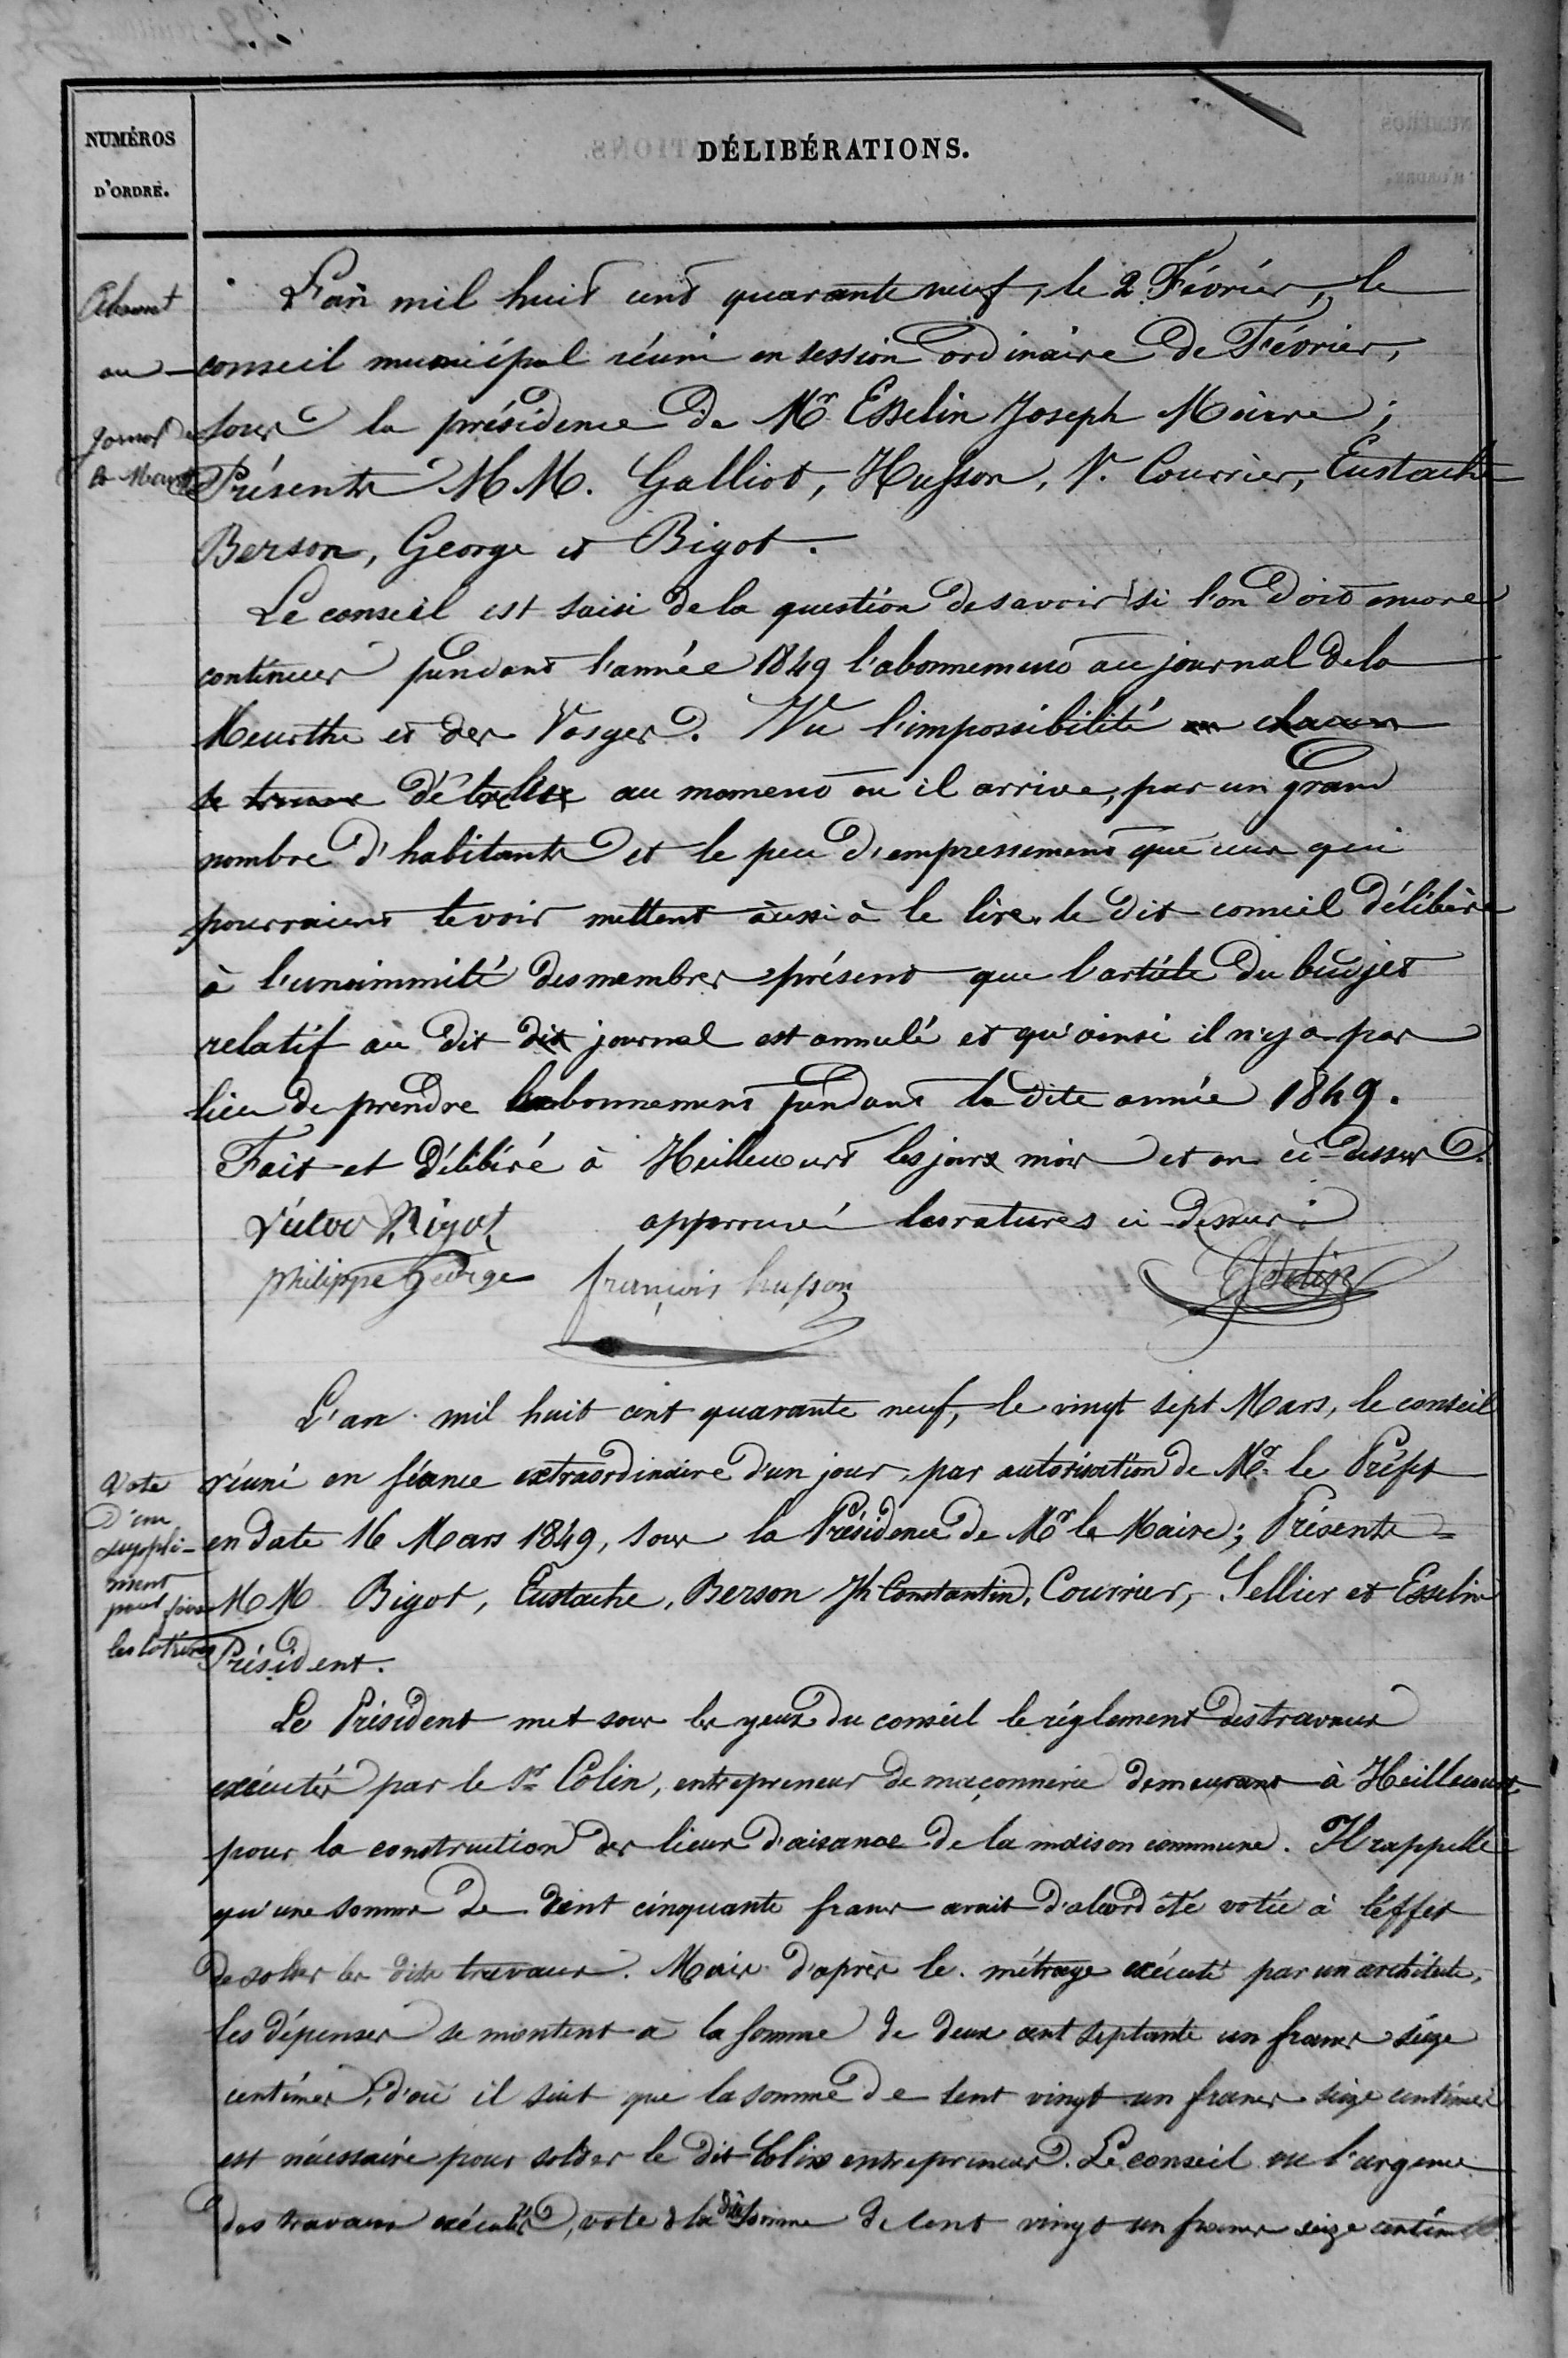 NUMÉROS
D'ORDRE.
DÉLIBÉRATIONS.
L'an mil huit cent quarante neuf, le 2 Février, le
conseil municipal réuni en session ordinaire de Février,
sous la présidence de Mr Esselin Joseph Maire;
Présents MM. Galliot, Husson, V. Courrier, Eustache
Berson, George et Bigot.
Le conseil est saisi de la question de savoir si l'on doit encore
continuer pendant l'année 1849 l'abonnement au journal de la
Meurthe et des Vosges. Vu l'impossibilité chacun
se trouve d'être au moment où il arrive, par un grand
nombre d'habitants et le peu d'empressement que ceux qui
pourraient le voir mettent aussi à le lire, le dit conseil délibère
à l'unanimité des membres présent que l'article du budjet
relatif au dit dit journal est annulé et qu'ainsi il n'y a pas
lieu de prendre l'abonnement pendant la dite année 1849.
Fait et délibéré à Heillecourt les jours mois et an ci-dessus.
Victor Bigot approuvé les ratures ci-dessus
philippe George françois husson Esselin
Abont
au
Journal de
la Meurthe
L'an mil huit cent quarante neuf, le vingt sept Mars, le conseil
réuni en séance extraordinaire d'un jour, par autorisation de Mr. le Préfet
en date 16 Mars 1849, sous la Présidence de Mr le Maire; Présents =
MM Bigot, Eustache, Berson Jh Constantin, Courrier, Sellier et Esselin
Président.
Vote
d'un
supplé-
ment
pour faire
les latrines
Le Président met sous les yeux du conseil le réglement des travaux
exécutés par le Sr Colin, entrepreneur de maçonnerie demeurant à Heillecourt,
pour la construction des lieux d'aisance de la maison commune. Il rappelle
qu'une somme de cent cinquante francs avait d'abord été votée à l'effet
de solder les dits travaux. Mais d'après le métrage exécuté par un architecte,
les dépenses se montent à la somme de deux cent septante un francs seize
centimes, d'où il suit que la somme de cent vingt un francs seize centimes
est nécessaire pour solder le dit Colin entrepreneur. Le conseil vu l'urgence
des travaux exécutés, vote la dite somme de cent vingt un francs seize centimes